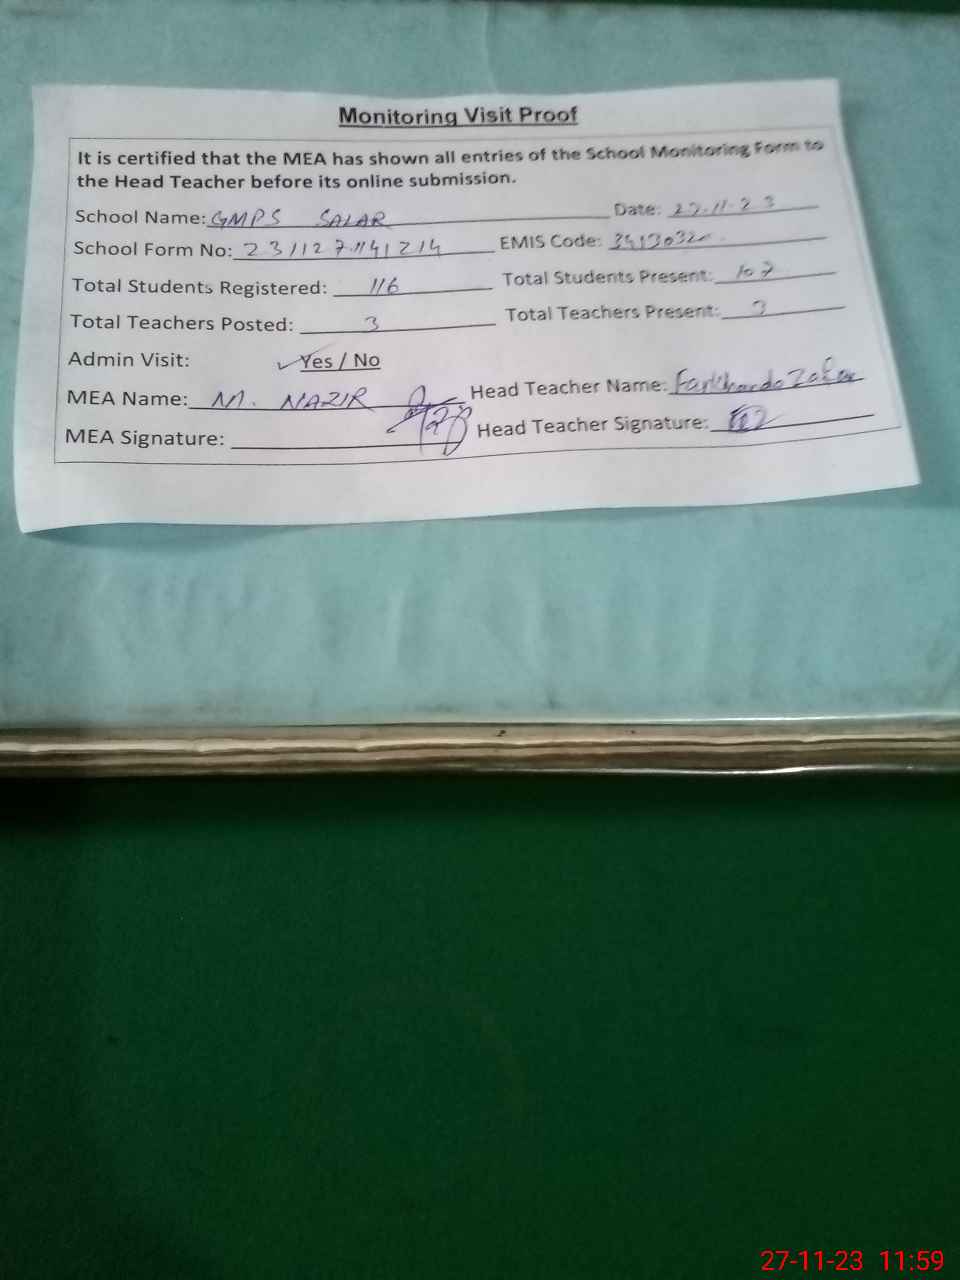 Monitoring Visit Proof
It is certified that the MEA has shown all entries of the School Monitoring Form to
the Head Teacher before its online submission.
School Name: GMPS SALAR Date: 27.11.23
School Form No: 2311271141214 EMIS Code:
Total Students Registered: 116 Total Students Present: 107
Total Teachers Posted: 3 Total Teachers Present: 3
Admin Visit: ✓Yes / No
MEA Name: M. NAZIR Head Teacher Name: Farkhanda Zafar
MEA Signature: Head Teacher Signature:
27-11-23 11:59